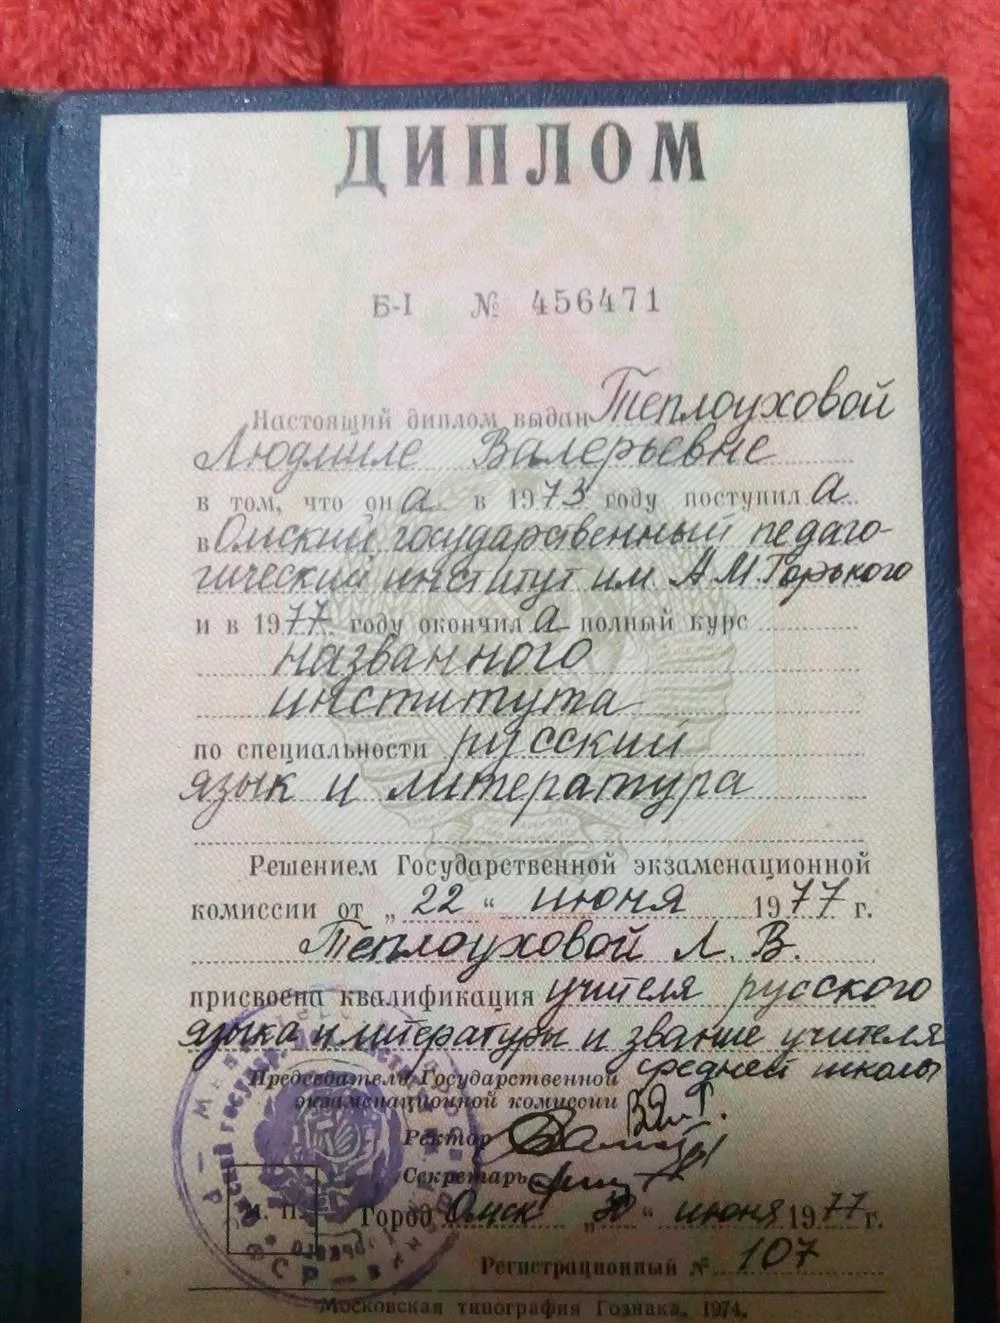 ДИПЛОМ
Б-I № 456471
Настоящий диплом выдан Теплоуховой
Людмиле Валерьевне
в том, что она в 1973 году поступила
в Омский государственный педаго-
гический институт им. А.М.Горького
и в 1977 году окончила полный курс
названного
института
по специальности русский
язык и литература
Решением Государственной экзаменационной
комиссии от „22“ июня 1977 г.
Теплоуховой Л. В.
присвоена квалификация учителя русского
языка и литературы и звание учителя
средней школы
Председатель Государственной
экзаменационной комиссии
Ректор
Секретарь
М. П.
Город Омск „30“ июня 1977 г.
Регистрационный № 107
Московская типография Гознака, 1974.